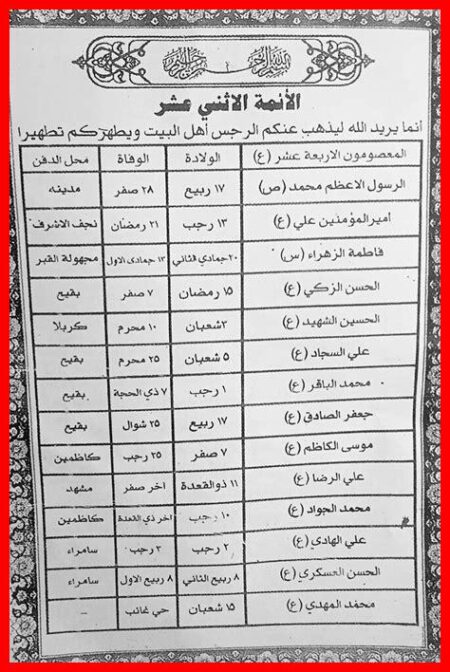 بسم الله الرحمن الرحيم
الأئمة الاثني عشر
انما يريد الله ليذهب عنكم الرجس أهل البيت ويطهركم تطهيرا
المعصومون الاربعة عشر (ع) الولادة الوفاة محل الدفن
الرسول الاعظم محمد (ص) ١٧ ربيع ٢٨ صفر مدينه
أمير المؤمنين علي (ع) ١٣ رجب ٢١ رمضان نجف الاشرف
فاطمة الزهراء (س) ٢٠ جمادي الثاني ١٣ جمادى الاول مجهولة القبر
الحسن الزكي (ع) ١٥ رمضان ٧ صفر بقيع
الحسين الشهيد (ع) ٣ شعبان ١٠ محرم كربلا
علي السجاد (ع) ٥ شعبان ٢٥ محرم بقيع
محمد الباقر (ع) ١ رجب ٧ ذي الحجة بقيع
جعفر الصادق (ع) ١٧ ربيع ٢٥ شوال بقيع
موسى الكاظم (ع) ٧ صفر ٢٥ رجب كاظمين
علي الرضا (ع) ١١ ذوالقعدة اخر صفر مشهد
محمد الجواد (ع) ١٠ رجب اخر ذي القعدة كاظمين
علي الهادي (ع) ٢ رجب ٣ رجب سامراء
الحسن العسكري (ع) ٨ ربيع الثاني ٨ ربيع الاول سامراء
محمد المهدي (ع) ١٥ شعبان حي غائب -